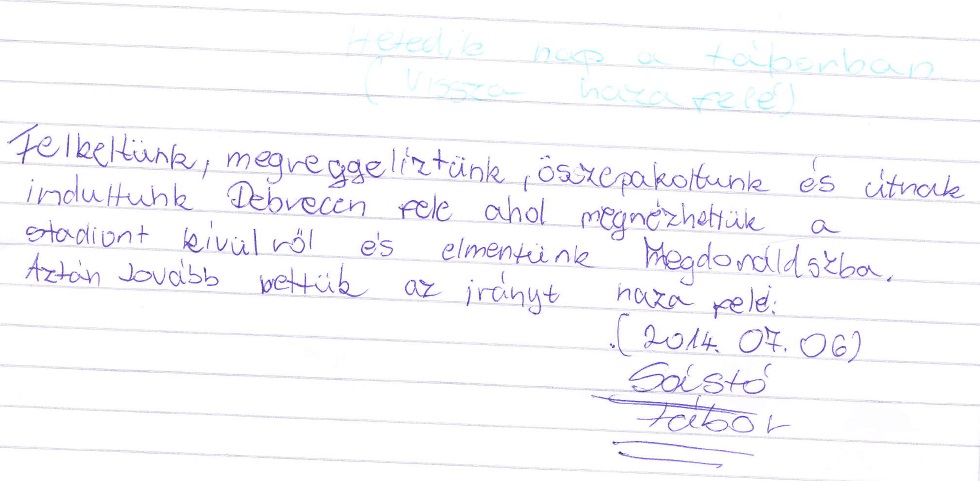 Hetedik nap a táborban
(Vissza haza felé)
Felkeltünk, megreggeliztünk, öszepakoltunk és útnak
indultunk Debrecen fele ahol megnézhettük a
stadiont kívülről és elmentünk Megdonáldszba.
Aztán tovább vettük az irányt haza felé.
(2014. 07. 06)
Sóstó
tábor